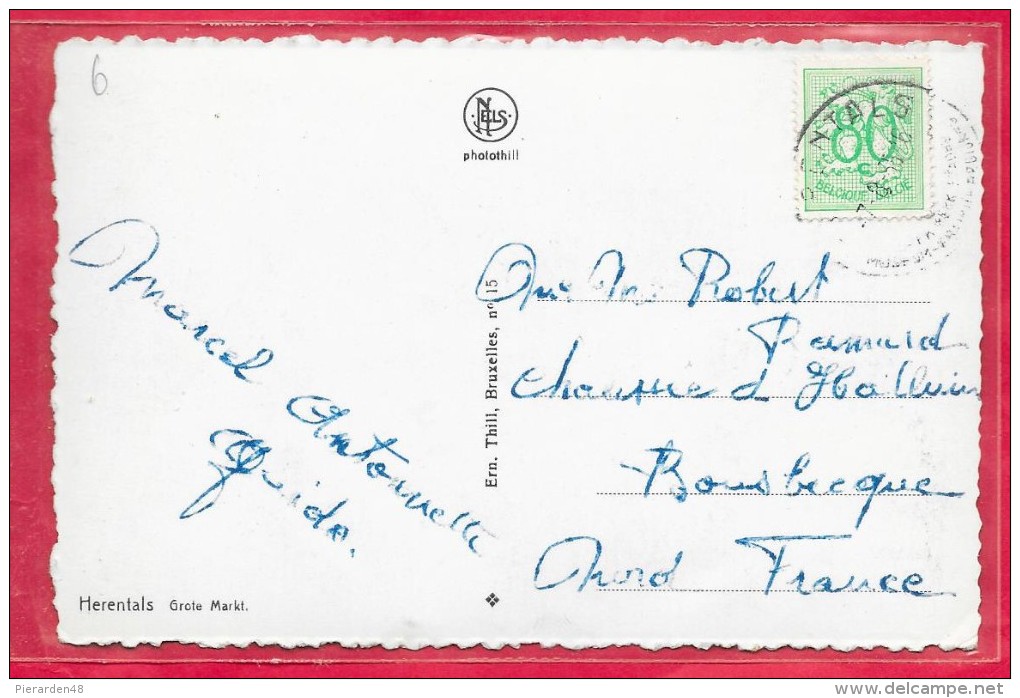 6
NELS
photothill
80
C
BELGIQUE BELGIE
Ern. Thill, Bruxelles, nº 15
Marcel
Antoinette
Guido.
Mr Robert
Chaussée d'Halluin
Bousbecque
Nord France
Herentals Grote Markt.
Pierarden48
www.delcampe.net